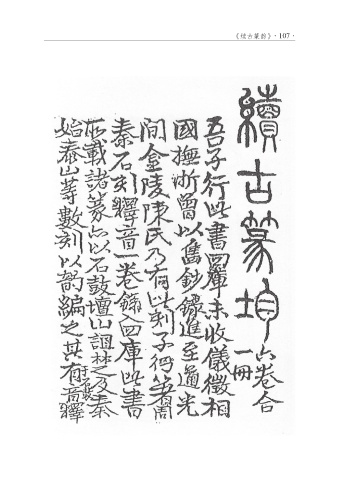 《续古篆韵》· 107 ·
續古篆均 六卷合
一冊
吾子行此書四庫未收儀徵相
國撫浙曾以舊鈔錄進至道光
間金陵陳氏乃有此刻子行箸周
秦石刻釋音一卷錄入四庫此書
所載諸篆亦以石鼓壇山詛楚及秦
始泰山等數刻以韵編之其有音釋